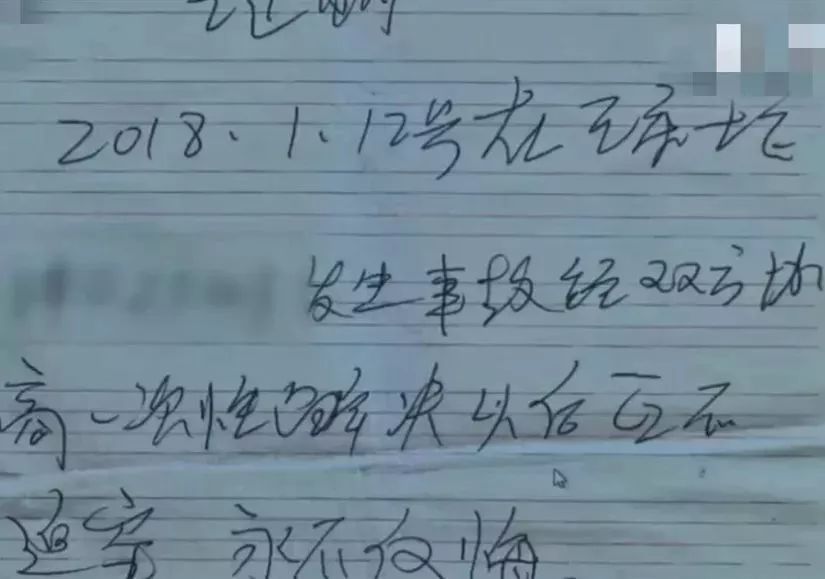 2018、1、12号在王庄七
发生事故经双方协
商一次性解决以后互不
追究 永不反悔